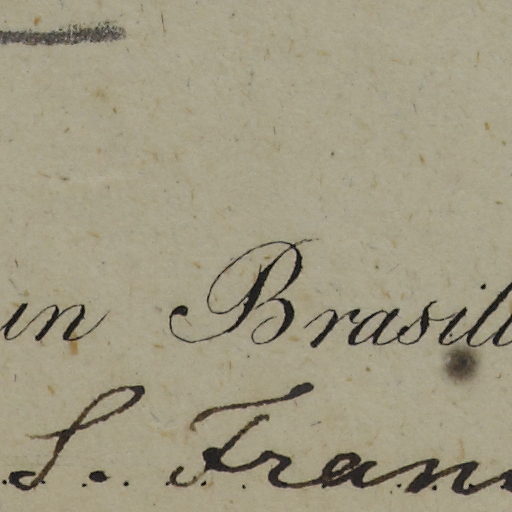 in Brasil
S. Fran